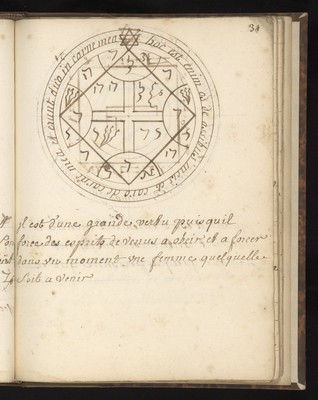 34
hoc est enim os de ossibus meis et caro de carne mea et erunt duo in carne mea
Il est d'une grande vertu puisquil
force des esprits de venus a obeir et a forcer
dans un moment une femme quelquelle
Soit a venir